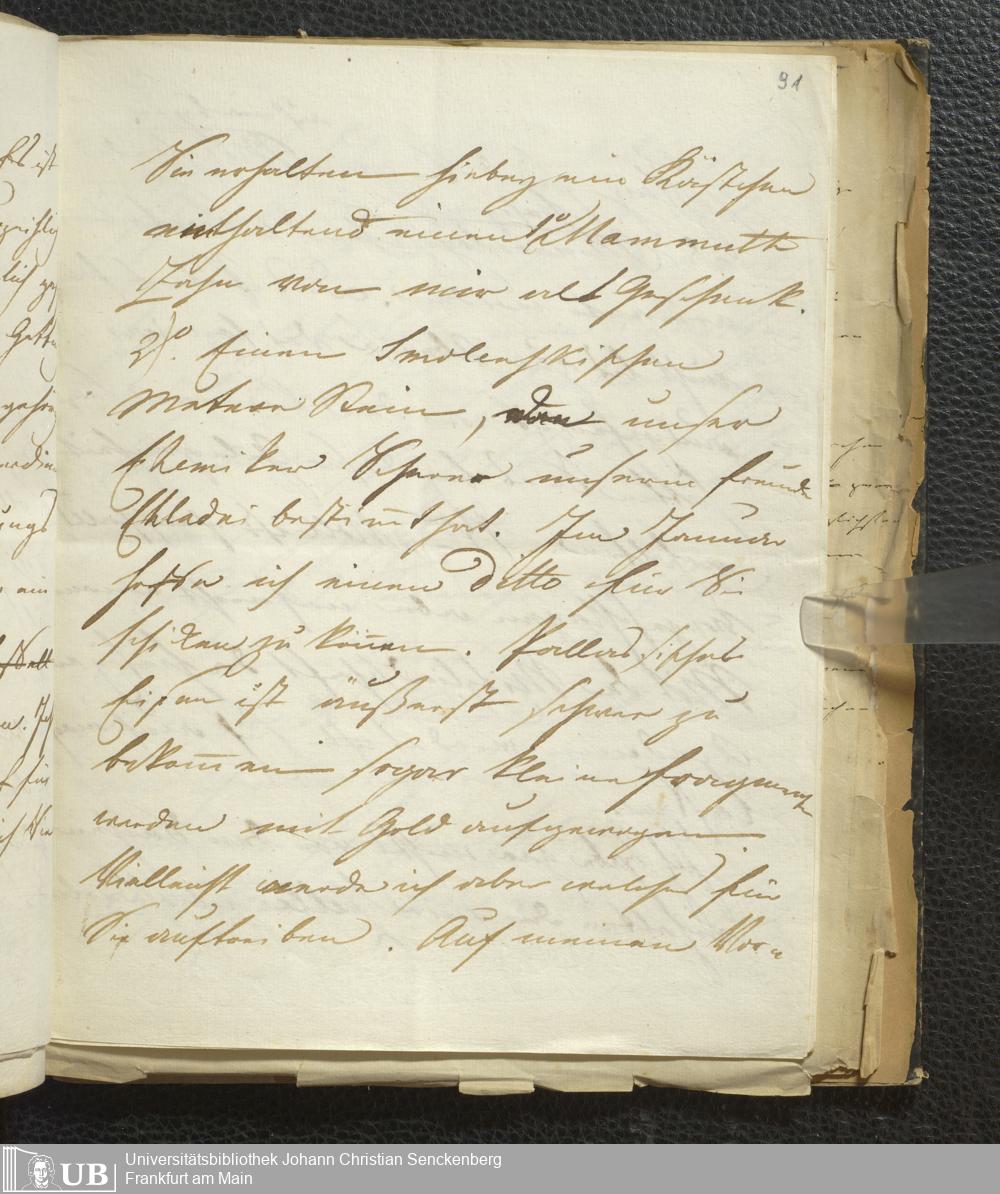 91
Sie erhalten hiebey ein Kästchen
enthaltend einen 1o) Mammuth
Zahn von mir als Geschenk.
2)o. Einen Smolenskischen
Meteor Stein, den unser
Chemiker Scherer unserm Freunde
Chladni bestimt hat. Im Januar
hoffe ich einen Ditto für Sie
schiken zu können. Pallasisches
Eisen ist äußerst schwer zu
bekommen sogar kleine Fragmente
werden mit Gold aufgewogen.
Vielleicht werde ich aber welches für
Sie auftreiben. Auf meinen Vor=
UB
Universitätsbibliothek Johann Christian Senckenberg
Frankfurt am Main